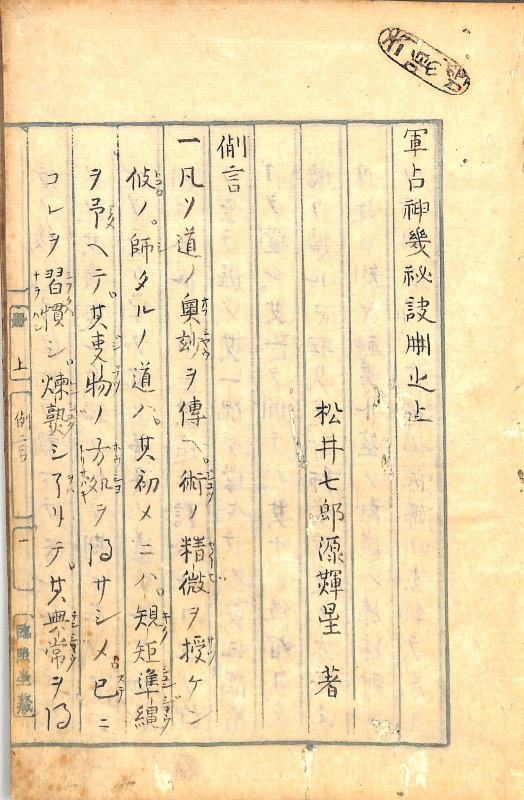 軍占神幾祕訣冊之上
松井七郎源輝星 著
例言
一凡ソ道ノ奥玅ヲ傳ヘ。術ノ精微ヲ授ケン
攸ノ。師タルノ道ハ。其初メニハ。規矩準縄
ヲ予ヘテ。其事物ノ方処ヲ得サシメ。已ニ
コレヲ習慣シ。煉熟シ了リテ。其典常ヲ得
上
例言
一